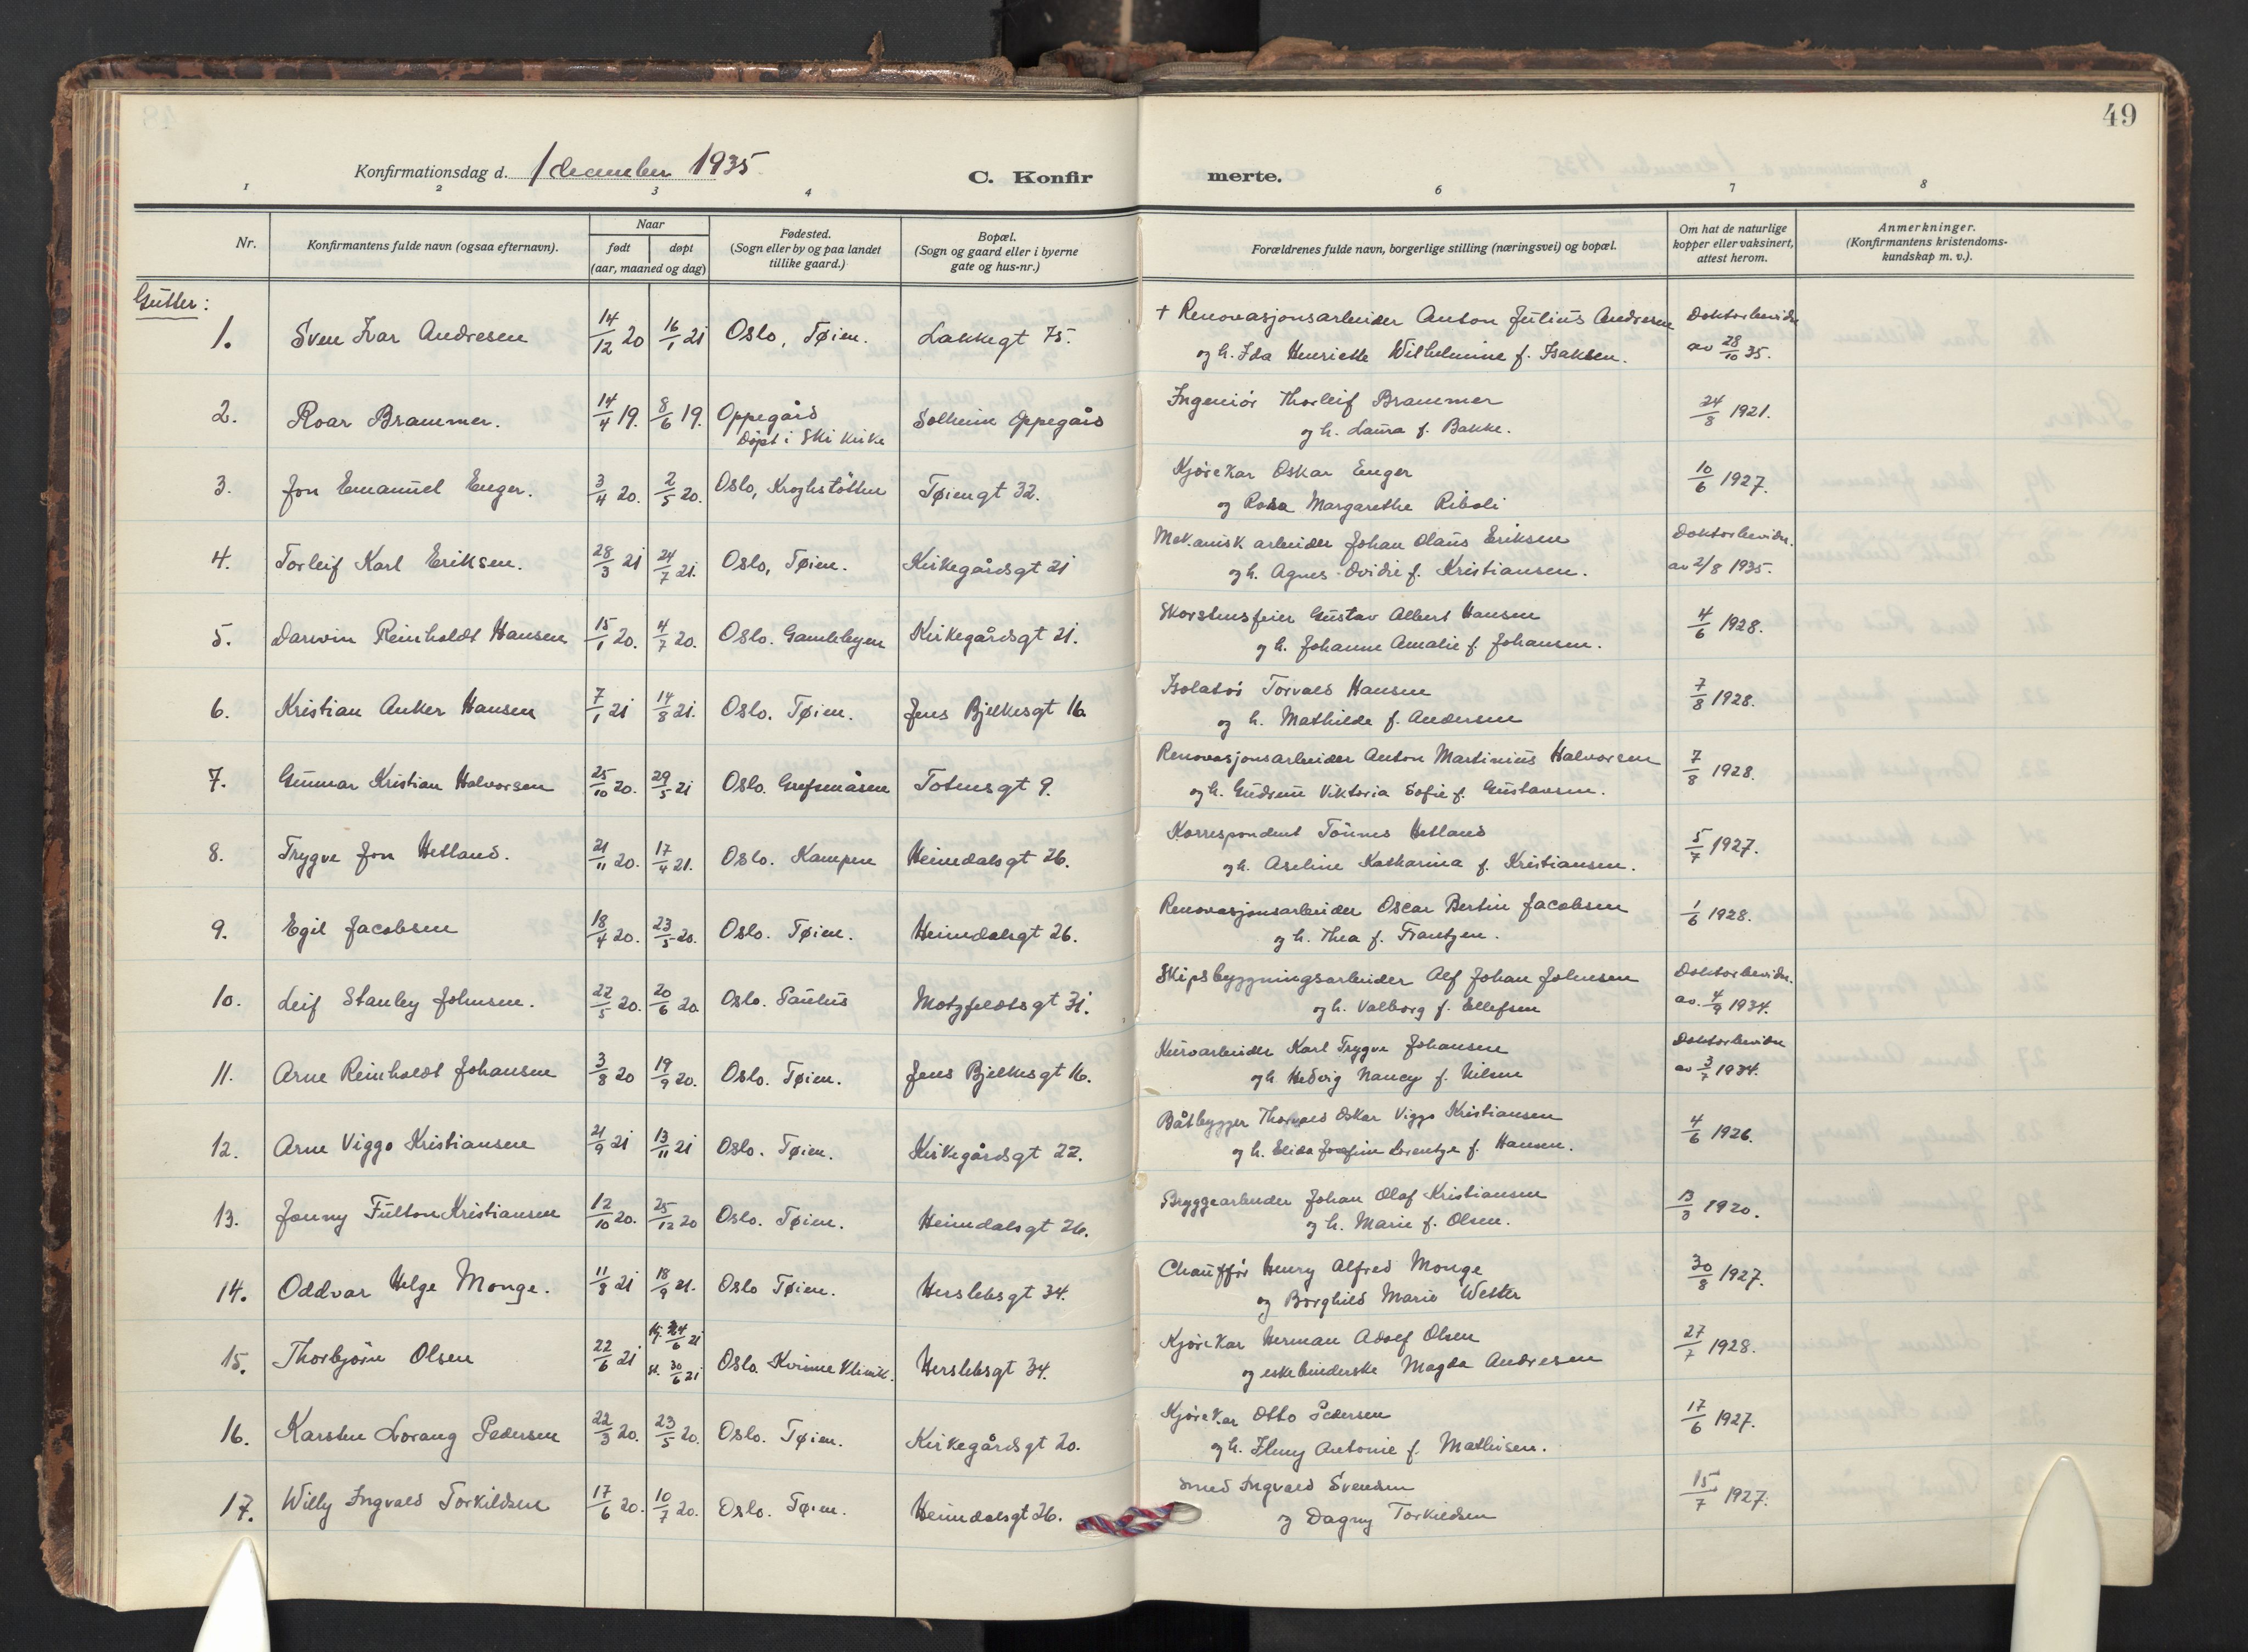 49
Konfirmationsdag d. 1 december 1935
C. Konfir merte.
1 2 3 4 6 7 8
Nr.
Konfirmantens fulde navn (ogsaa efternavn).
Naar
født døpt
(aar, maaned og dag)
Fødested.
(Sogn eller by og paa landet
tillike gaard.)
Bopæl.
(Sogn og gaard eller i byerne
gate og hus-nr.)
Forældrenes fulde navn, borgerlige stilling (næringsvei) og bopæl.
Om hat de naturlige
kopper eller vaksinert,
attest herom.
Anmerkninger.
(Konfirmantens kristendoms-
kundskap m. v.).
Gutter:
1. Sven Ivar Andresen 14/12 20 16/1 21 Oslo, Tøien. Lakkegt 75. + Renovasjonsarbeider Anton Julius Andresen Doktorbevidn
og h. Ida Henriette Wilhelmine f. Isaksen. av 28/10 35.
2. Roar Brammer. 14/4 19. 8/6 19. Oppegård Solheim Oppegård Ingeniør Thorleif Brammer 24/8 1921.
døpt i Ski kirke og h. Laura f. Bakke.
3. Jon Emanuel Enger. 3/4 20. 2/5 20. Oslo, Kroghstötten Tøiengt 32. Kjørekar Oskar Enger 10/6 1927.
og Rosa Margarethe Riboli
4. Torleif Karl Eriksen. 28/3 21 24/7 21. Oslo, Tøien. Kirkegårdsgt 21 Mekanisk arbeider Johan Olaus Eriksen Doktorbevidn.
og h. Agnes Ovidie f. Kristiansen. av 2/8 1935.
5. Darwin Reinholdt Hansen 15/1 20. 4/7 20. Oslo. Gamlebyen Kirkegårdsgt 21. Skorstensfeier Gustav Albert Hansen 4/6 1928.
og h. Johanne Amalie f. Johansen.
6. Kristian Anker Hansen 7/1 21 14/8 21. Oslo. Tøien. Jens Bjelkesgt 16 Isolatør Torvald Hansen 7/8 1928.
og h. Mathilde f. Andersen
7. Gunnar Kristian Halvorsen 25/10 20. 29/5 21 Oslo. Grefsenåsen Totensgt 9. Renovasjonsarbeider Anton Martinius Halvorsen 7/8 1928.
og h. Gudrun Viktoria Sofie f. Gustavsen.
8. Trygve Jon Hetland. 21/11 20. 17/4 21. Oslo. Kampen Heimdalsgt 26. Korrespondent Tönnes Hetland 5/7 1927.
og h. Aseline Katharina f. Kristiansen.
9. Egil Jacobsen 18/4 20. 23/5 20. Oslo. Tøien. Heimdalsgt 26. Renovasjonsarbeider Oscar Bertin Jacobsen 1/6 1928.
og h. Thea f. Frantzen.
10. Leif Stanley Johnsen. 22/5 20. 20/6 20 Oslo. Paulus Motzfeldtsgt 31. Skipsbyggningsarbeider Alf Johan Johnsen Doktorbevidn.
og h. Valborg f. Ellefsen av. 4/9 1934.
11. Arne Reinholdt Johansen 3/8 20 19/9 20. Oslo. Tøien. Jens Bjelkesgt 16. Kurvarbeider Karl Trygve Johansen Doktorbevidn
og h Hedvig Nancy f. Nilsen av 3/7 1934.
12. Arne Viggo Kristiansen 21/9 21 13/11 21 Oslo. Tøien. Kirkegårdsgt 22. Båtbygger Thorvald Oskar Viggo Kristiansen 4/6 1926.
og h. Elida Josefine Lorentze f. Hansen.
13. Jonny Fulton Kristiansen 12/10 20. 25/12 20 Oslo. Tøien. Heimdalsgt 26. Bryggearbeider Johan Olaf Kristiansen 13/3 1920.
og h. Marie f. Olsen.
14. Oddvar Helge Monge. 11/8 21 18/9 21. Oslo Tøien. Herslebsgt 34. Chauffør Henry Alfred Monge 30/8 1927.
og Borghild Marie Wetter
15. Thorbjörn Olsen 22/6 21 Hj. 24/6 21 Oslo. Kvinneklinikk. Herslebsgt 34. Kjørekar Herman Adolf Olsen 27/7 1928.
st. 30/6 21 og eskebinderske Magda Andresen
16. Karsten Lorang Pedersen 22/3 20. 23/5 20. Oslo. Tøien. Kirkegårdsgt 20. Kjørekar Otto Pedersen 17/6 1927.
og h. Jenny Antonie f. Mathisen.
17. Willy Ingvald Torkildsen 17/6 20. 10/7 20. Oslo. Tøien. Heimdalsgt 26. Smed Ingvald Svendsen 15/7 1927.
og Dagny Torkildsen